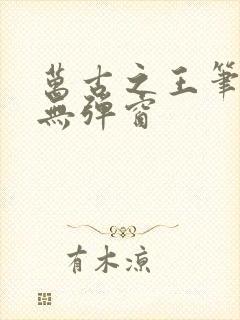 萬古之王筆
無彈窗
有木涼